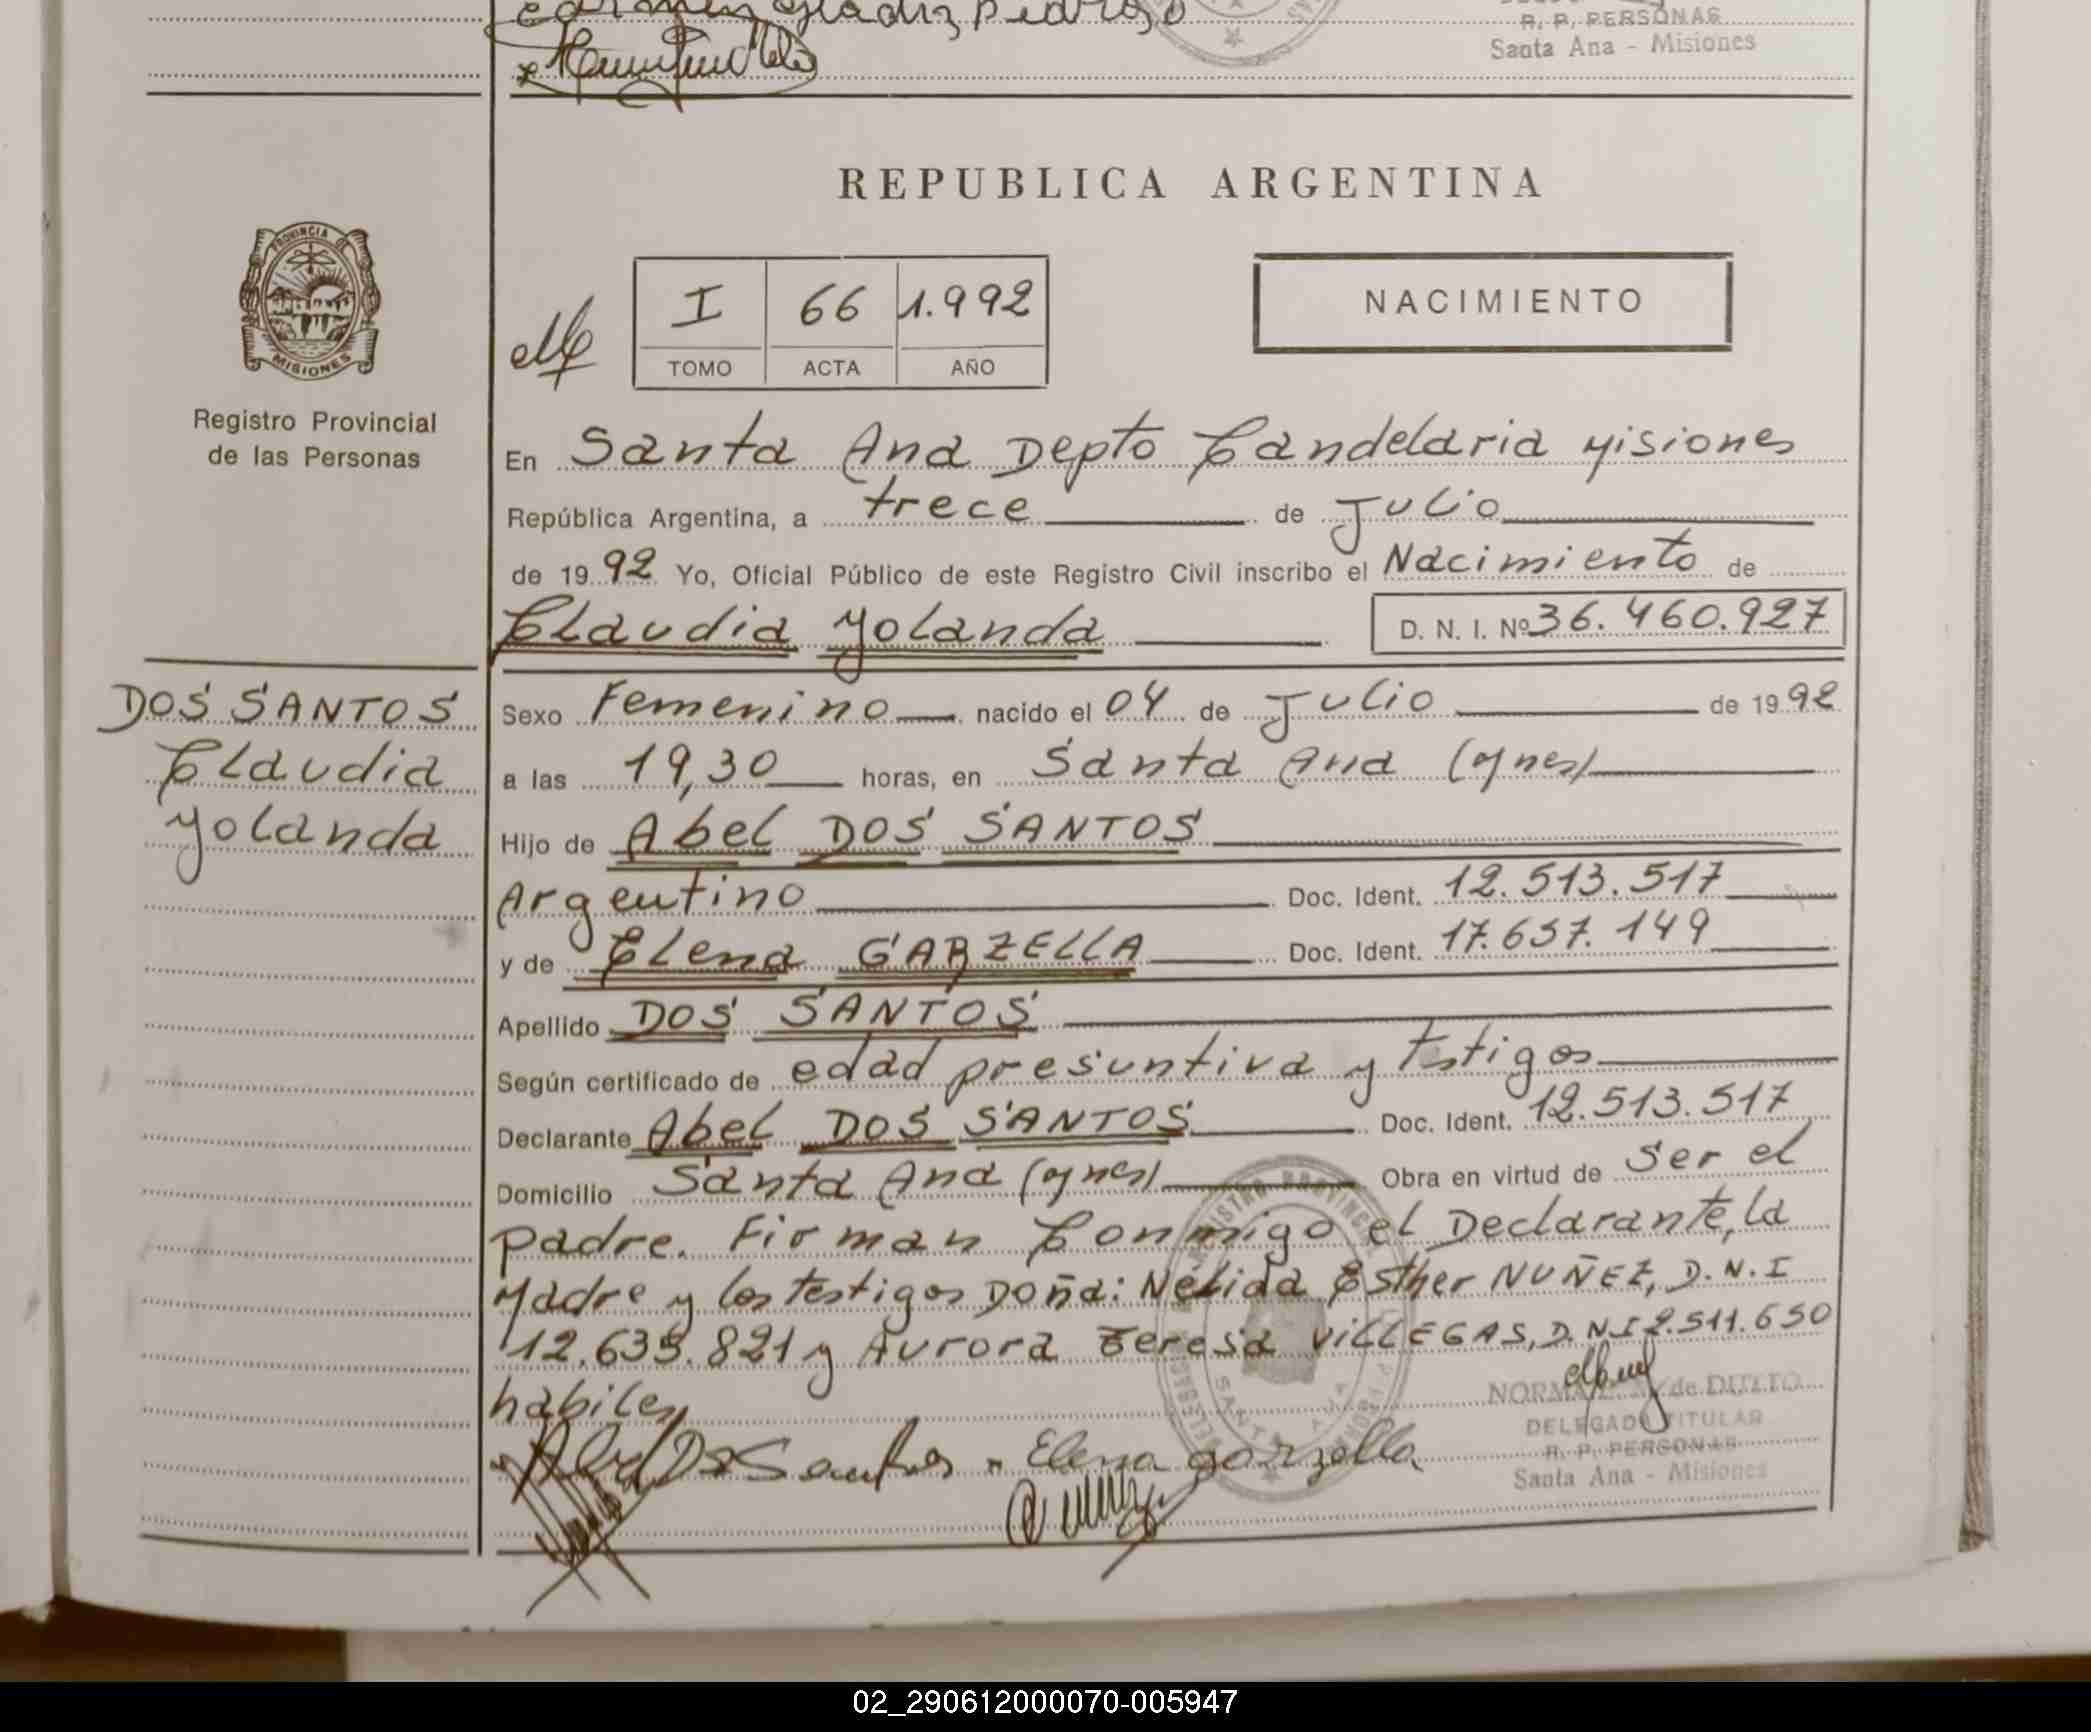 Carmen Gladiz Pedrozo
R. P. PERSONAS
Santa Ana - Misiones
REPUBLICA ARGENTINA
PROVINCIA DE
MISIONES
Registro Provincial
de las Personas
I 66 1.992
TOMO ACTA AÑO
NACIMIENTO
En Santa Ana Depto Candelaria Misiones
República Argentina, a trece de Julio
de 19 92 Yo, Oficial Público de este Registro Civil inscribo el Nacimiento de
Claudia Yolanda D. N. I. Nº 36.460.927
DOS SANTOS
Claudia
Yolanda
Sexo Femenino nacido el 04 de Julio de 19 92
a las 19,30 horas, en Santa Ana (Mnes)
Hijo de Abel DOS SANTOS
Argentino Doc. Ident. 12.513.517
y de Elena GARZELLA Doc. Ident. 17.637.149
Apellido DOS SANTOS
Según certificado de edad presuntiva y testigos
Declarante Abel DOS SANTOS Doc. Ident. 12.513.517
Domicilio Santa Ana (Mnes) Obra en virtud de Ser el
padre. Firman Conmigo el Declarante, la
Madre y los testigos Doña: Nelida Esther NUÑEZ, D.N.I
12.635.821 y Aurora Teresa VILLEGAS, D.N.I 2.511.650
habiles
Abel Dos Santos - Elena garzella
NORMA de DUTTO
DELEGADA TITULAR
R. P. PERSONAS
Santa Ana - Misiones
REGISTRO PROVINCIAL
SANTA ANA
02_290612000070-005947